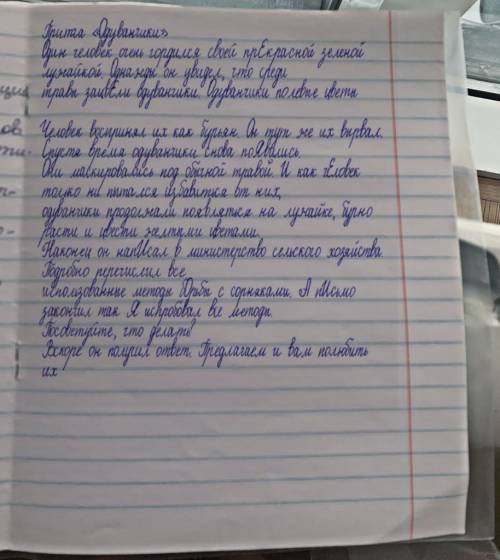 Притча «Одуванчики»
Один человек очень гордился своей прЕкрасной зеленой
лужайкой. Однажды он увидел, что среди
травы зацвЕли одуванчики. Одуванчики полевые цветы
Человек воспринял их как бурьян. Он тут же их вырвал.
Спустя время одуванчики снова поЯвились.
Они маскировались под обычной травой. И как чЕловек
только ни пытался избавиться от них,
одуванчики продолжали появляться на лужайке, бурно
расти и цвести желтыми цветами.
Наконец он напИсал в министерство сельского хозяйства.
Подробно перечислил все
использованные методы бОрьбы с сорняками. А пИсьмо
закончил так Я испробовал все методы.
Посоветуйте, что делать!
Вскоре он получил ответ. Предлагаем и вам полюбить
их